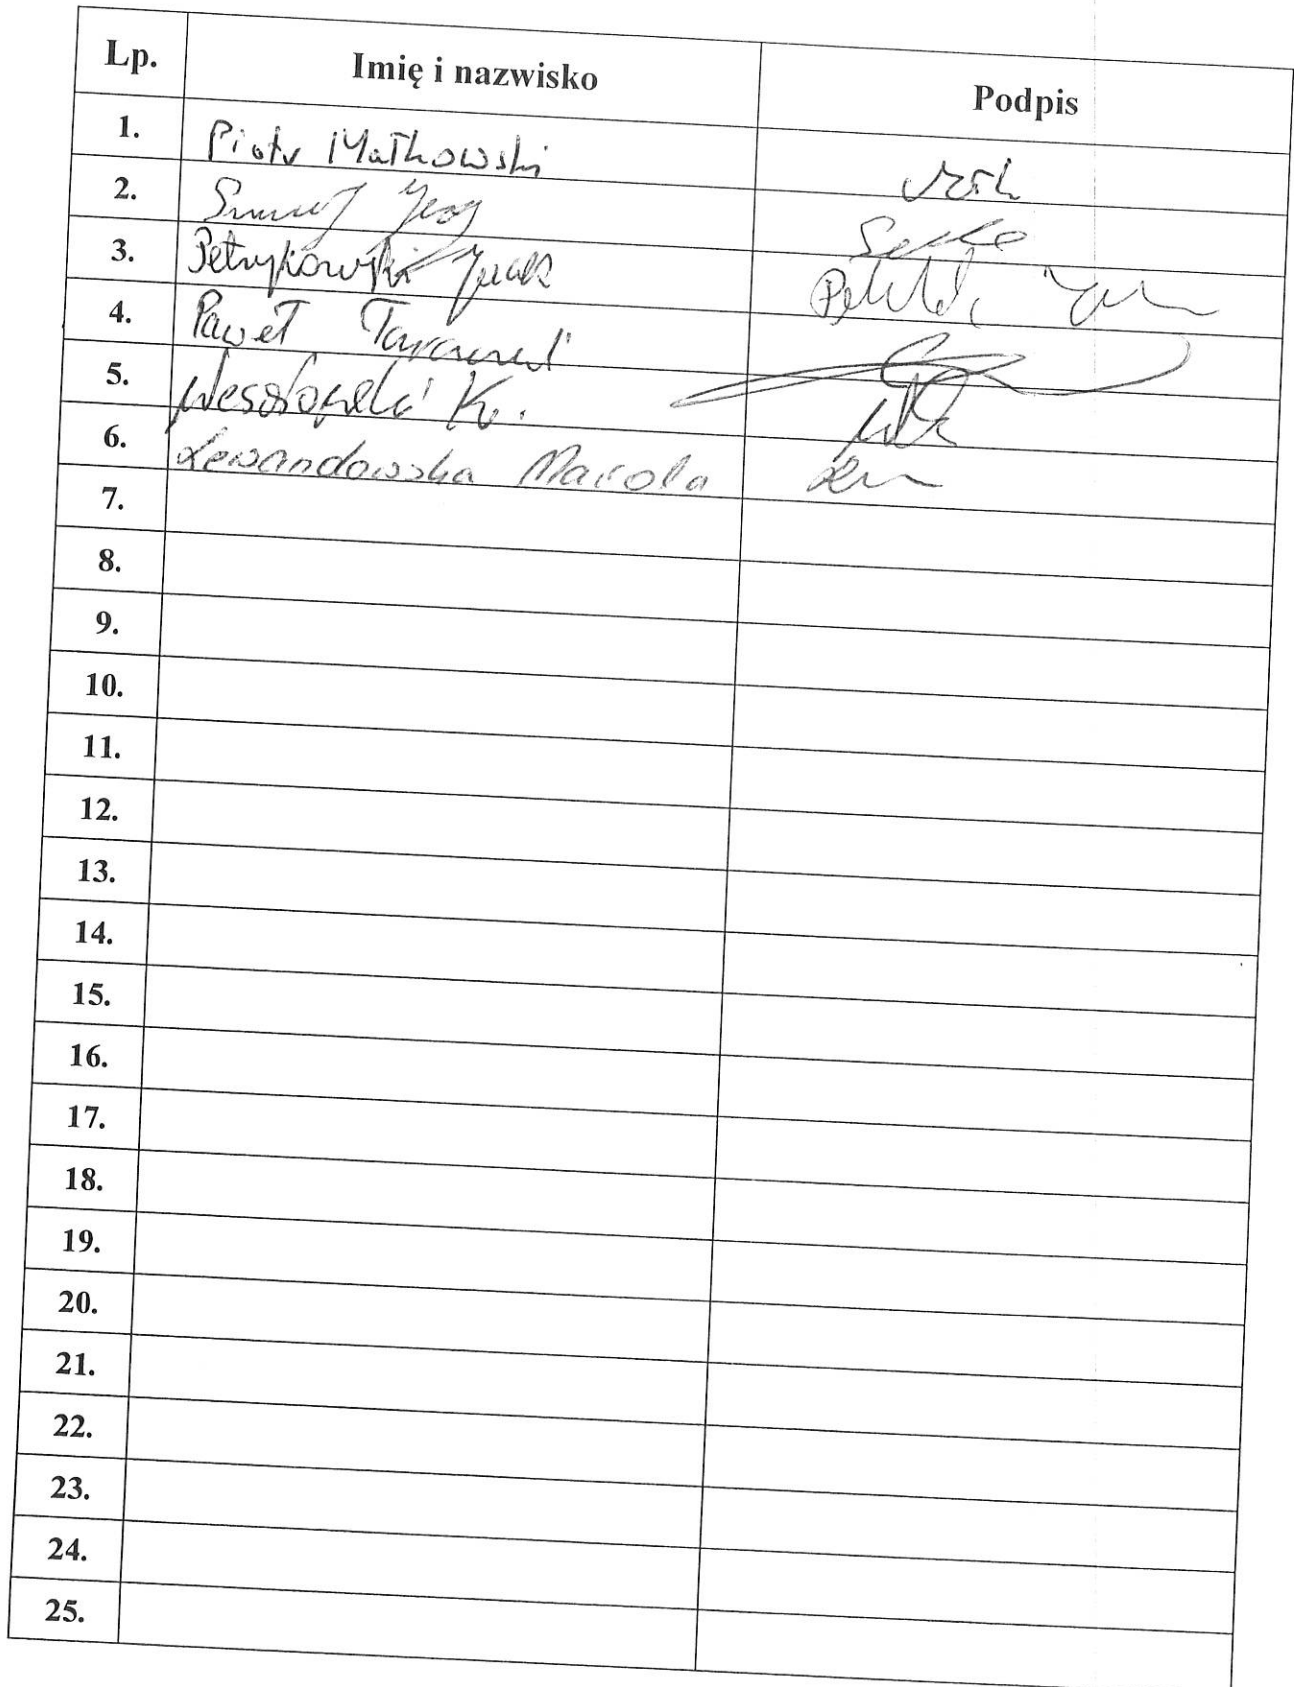 Lp. Imię i nazwisko Podpis
1. Piotr Małkowski
2.
3. Petrykowski Jacek
4. Paweł
5. Wesołowski K.
6. Lewandowska Mariola
7.
8.
9.
10.
11.
12.
13.
14.
15.
16.
17.
18.
19.
20.
21.
22.
23.
24.
25.